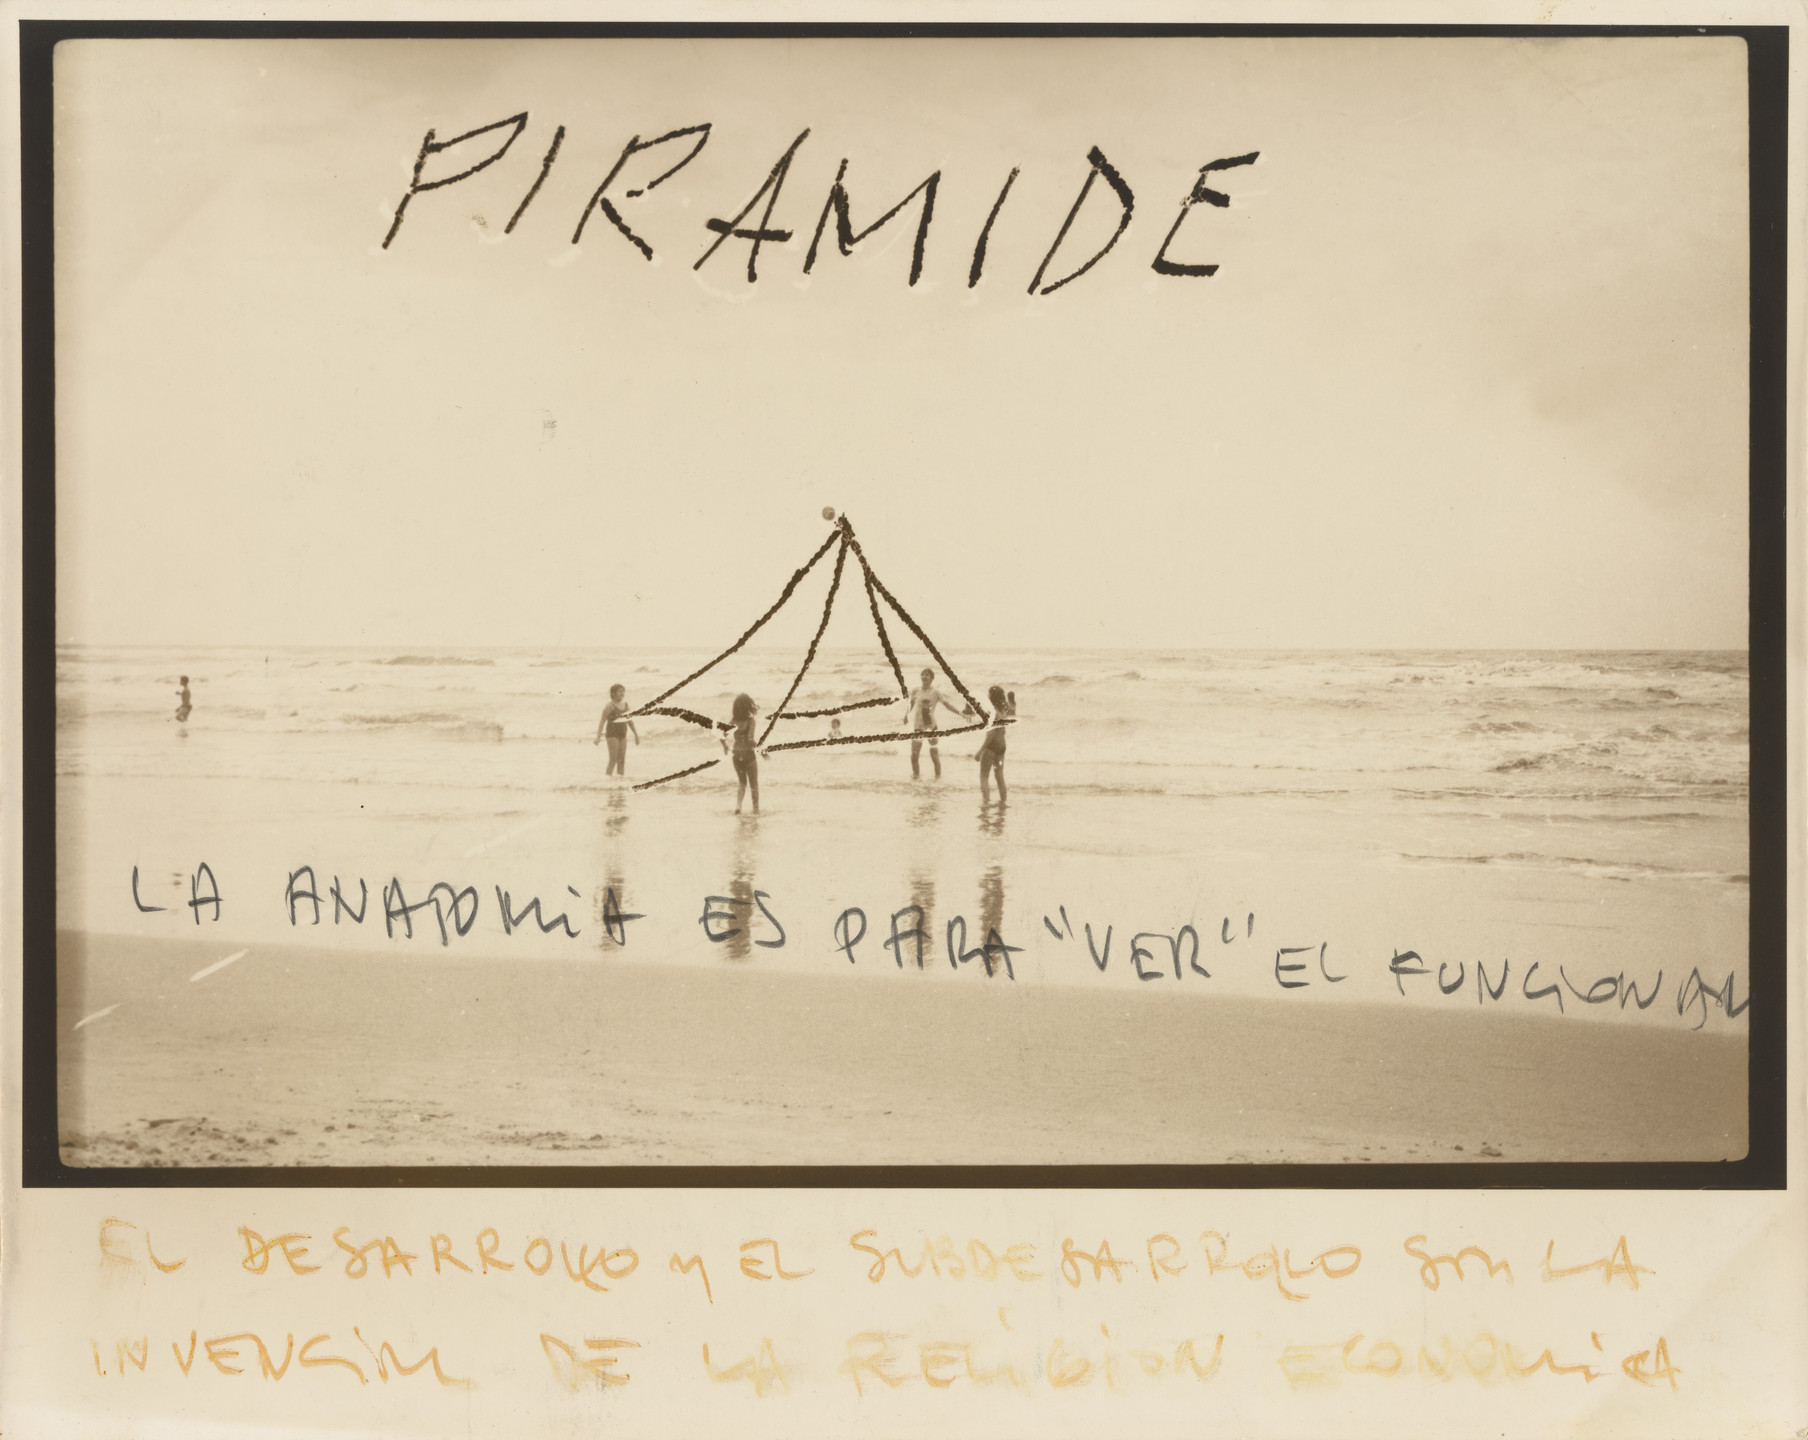 PIRAMIDE
LA ANATOMiA ES PARA "VER" EL FUNCIONAL
EL DESARROLLO y EL SUBDESARROLLO SON LA
INVENCIÓN DE LA RELiGiON ECONOMiCA